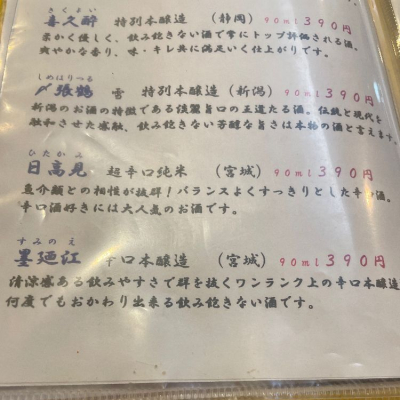 きくよい
喜久酔 特別本醸造 (静岡) 90ml390円
柔かく優しく、飲み飽きない酒で常にトップ評価される酒。
爽やかな香り、味・キレ共に満足いく仕上がりです。
しめはりつる
〆張鶴 雪 特別本醸造(新潟) 90ml390円
新潟のお酒の特徴である淡麗旨口の王道たる酒。伝統と現代を
融和させた感触、飲み飽きない芳醇な旨さは本物の酒と言えます。
ひたかみ
日高見 超辛口純米 (宮城) 90ml390円
魚介類との相性が抜群!バランスよくすっきりとした辛口酒。
辛口酒好きには大人気のお酒です。
すみのえ
墨廼江 辛口本醸造 (宮城) 90ml390円
清涼感ある飲みやすさで群を抜くワンランク上の辛口本醸造
何度でもおかわり出来る飲み飽きない酒です。